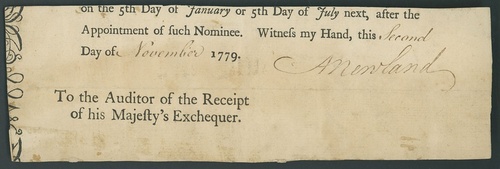 on the 5th Day of January or 5th Day of July next, after the
Appointment of ſuch Nominee. Witneſs my Hand, this Second
Day of November 1779.
A Newland
To the Auditor of the Receipt
of his Majeſty's Exchequer.